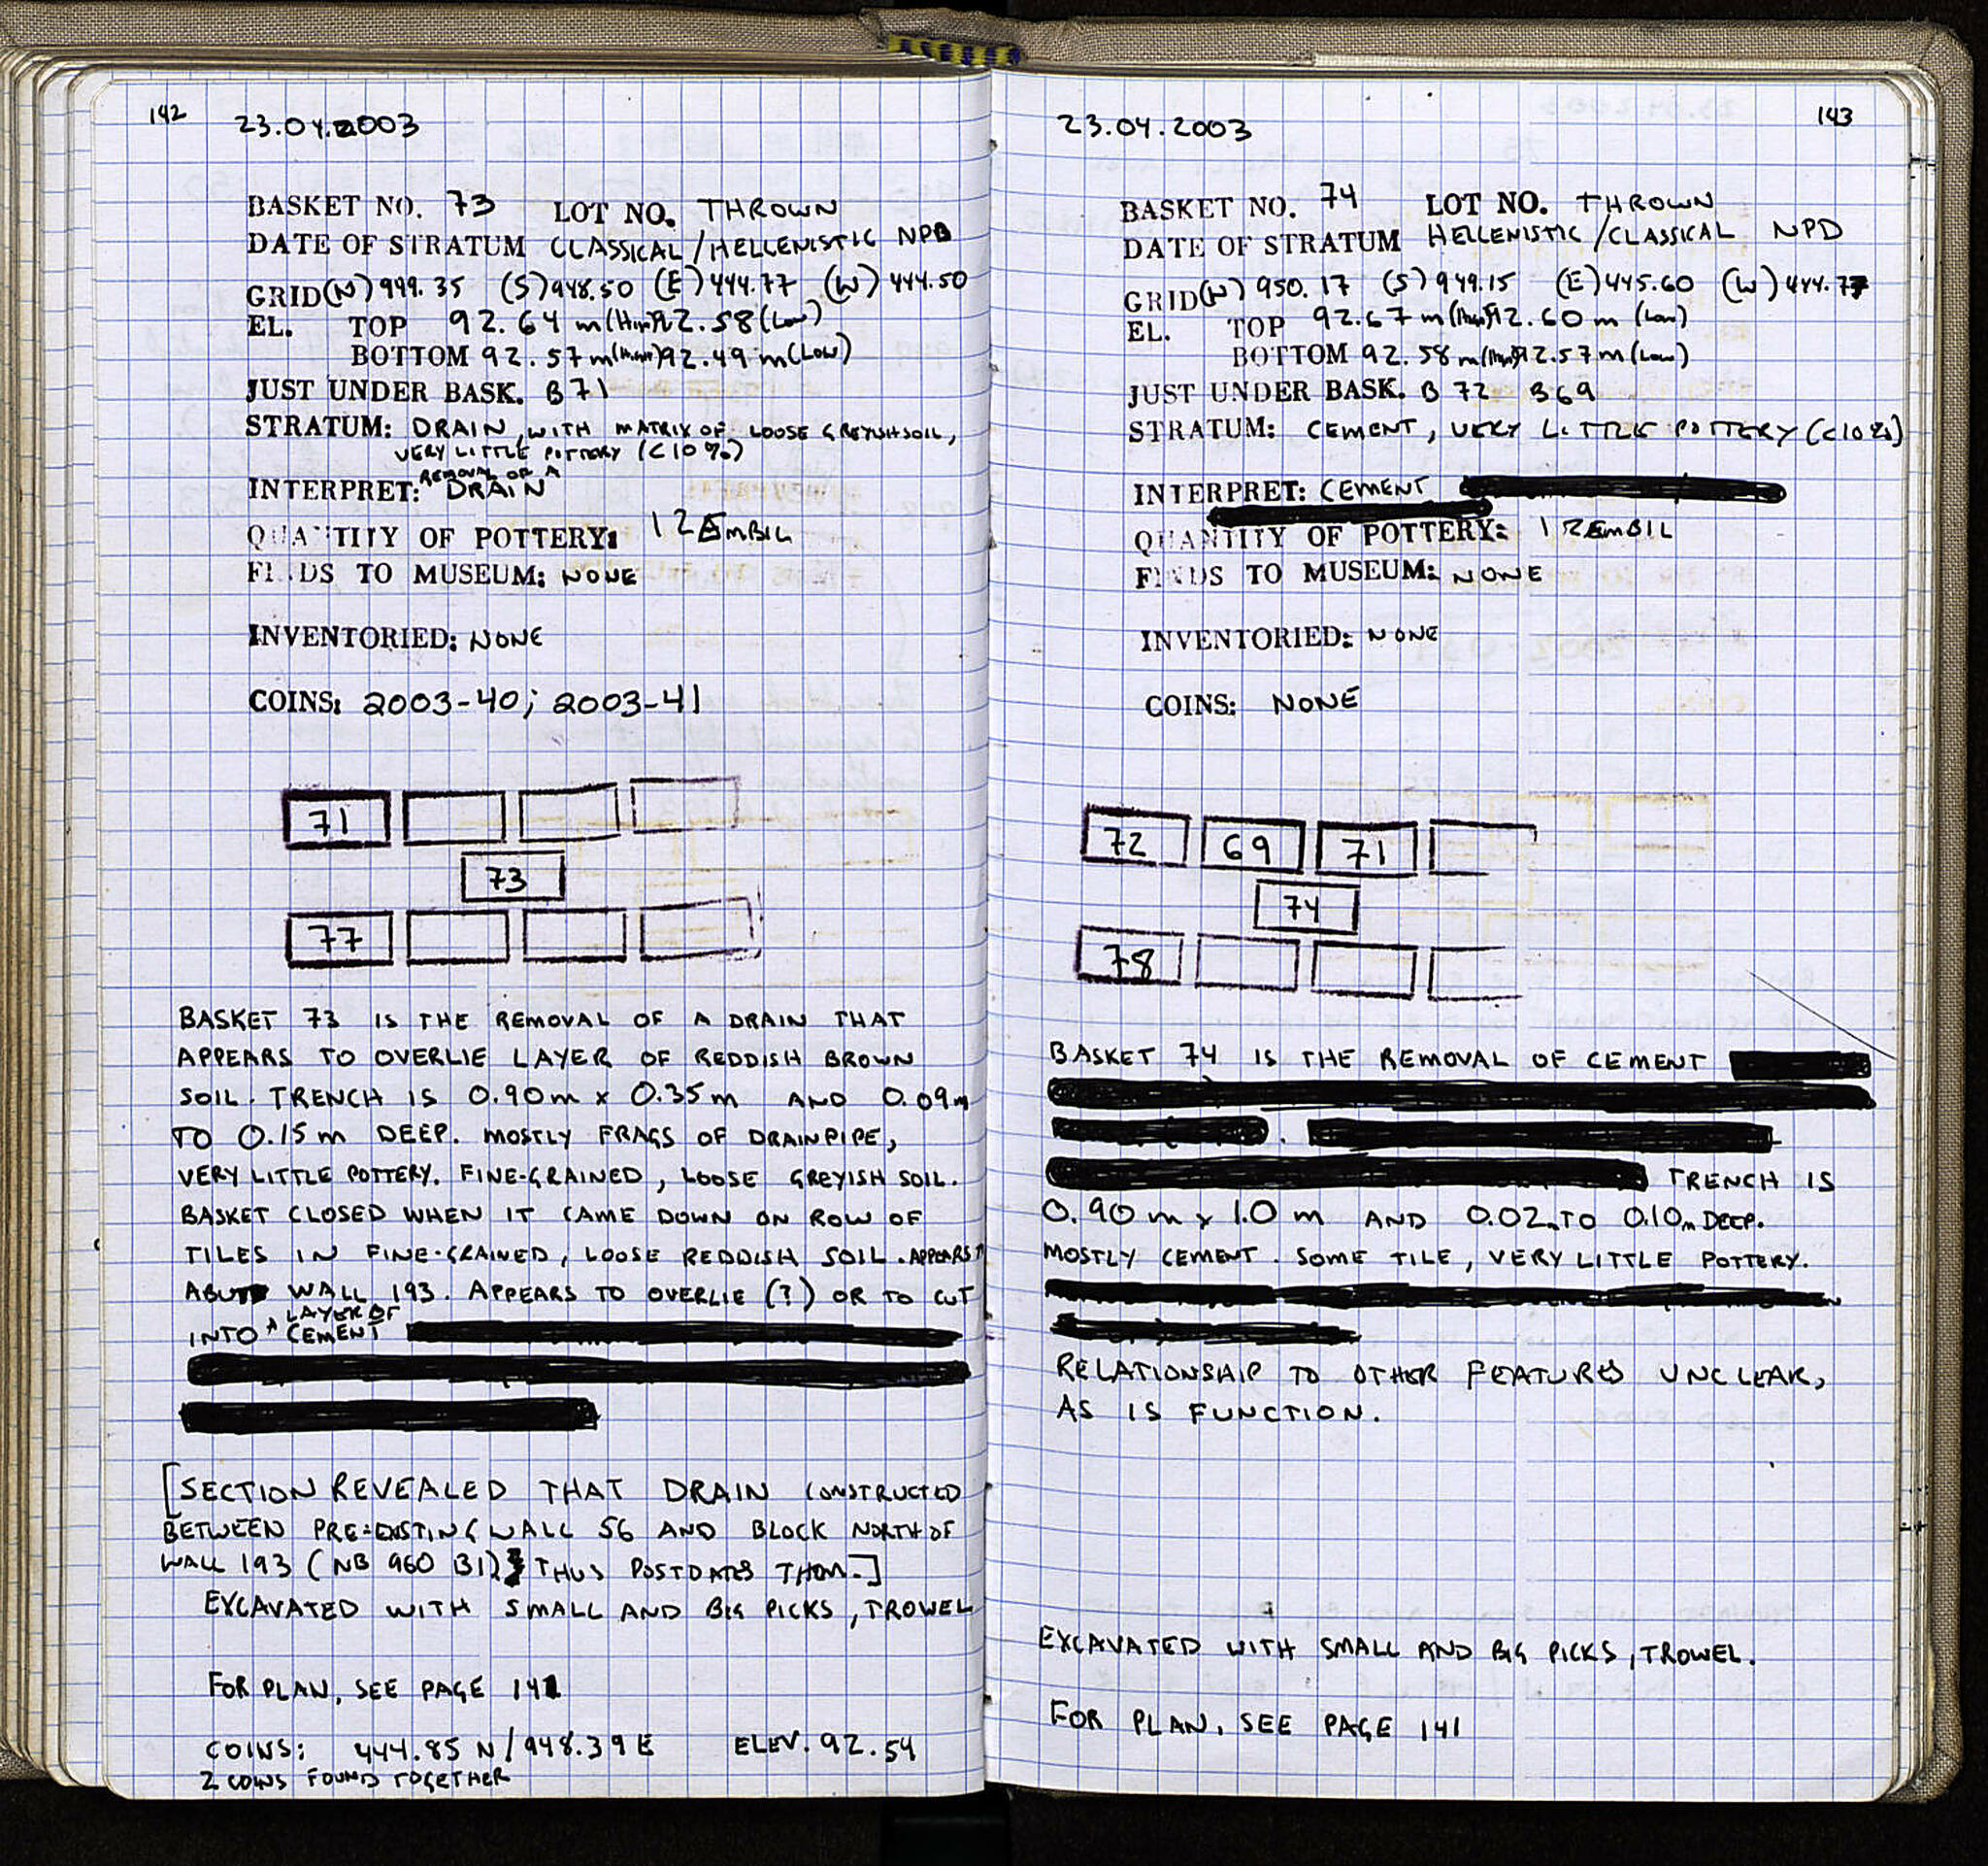 142
23.04.2003
BASKET NO. 73 LOT NO. THROWN
DATE OF STRATUM CLASSICAL/HELLENISTIC NPD
GRID(N) 949.35 (S) 948.50 (E) 444.77 (W) 444.50
EL. TOP 92.64 m (High) 92.58 (Low)
BOTTOM 92.57 m (High) 92.49 m (Low)
JUST UNDER BASK. B 71
STRATUM: DRAIN, WITH MATRIX OF LOOSE GREYISH SOIL,
VERY LITTLE POTTERY (<10%)
REMOVAL OF A
INTERPRET: DRAIN
QUANTITY OF POTTERY: 1 ZEMBIL
FINDS TO MUSEUM: NONE
INVENTORIED: NONE
COINS: 2003-40; 2003-41
71
73
77
BASKET 73 IS THE REMOVAL OF A DRAIN THAT
APPEARS TO OVERLIE LAYER OF REDDISH BROWN
SOIL. TRENCH IS 0.90m x 0.35m AND 0.09m
TO 0.15m DEEP. MOSTLY FRAGS OF DRAINPIPE,
VERY LITTLE POTTERY. FINE-GRAINED, LOOSE GREYISH SOIL.
BASKET CLOSED WHEN IT CAME DOWN ON ROW OF
TILES IN FINE-GRAINED, LOOSE REDDISH SOIL. APPEARS TO
ABUT WALL 193. APPEARS TO OVERLIE (?) OR TO CUT
LAYER OF
INTO ^ CEMENT
[SECTION REVEALED THAT DRAIN CONSTRUCTED
BETWEEN PRE-EXISTING WALL 56 AND BLOCK NORTH OF
WALL 193 (NB 960 B1); THUS POSTDATES THEM.]
EXCAVATED WITH SMALL AND BIG PICKS, TROWEL
FOR PLAN, SEE PAGE 141
COINS: 444.85 N/948.39 E ELEV. 92.54
2 COINS FOUND TOGETHER
143
23.04.2003
BASKET NO. 74 LOT NO. THROWN
DATE OF STRATUM HELLENISTIC/CLASSICAL NPD
GRID(N) 950.17 (S) 949.15 (E) 445.60 (W) 444.77
EL. TOP 92.67 m (High) 92.60 m (Low)
BOTTOM 92.58 m (High) 92.57 m (Low)
JUST UNDER BASK. B 72 B69
STRATUM: CEMENT, VERY LITTLE POTTERY (<10%)
INTERPRET: CEMENT
QUANTITY OF POTTERY: 1 ZEMBIL
FINDS TO MUSEUM: NONE
INVENTORIED: NONE
COINS: NONE
72 69 71
74
78
BASKET 74 IS THE REMOVAL OF CEMENT
TRENCH IS
0.90 m x 1.0 m AND 0.02m TO 0.10m DEEP.
MOSTLY CEMENT. SOME TILE, VERY LITTLE POTTERY.
RELATIONSHIP TO OTHER FEATURES UNCLEAR,
AS IS FUNCTION.
EXCAVATED WITH SMALL AND BIG PICKS, TROWEL.
FOR PLAN, SEE PAGE 141